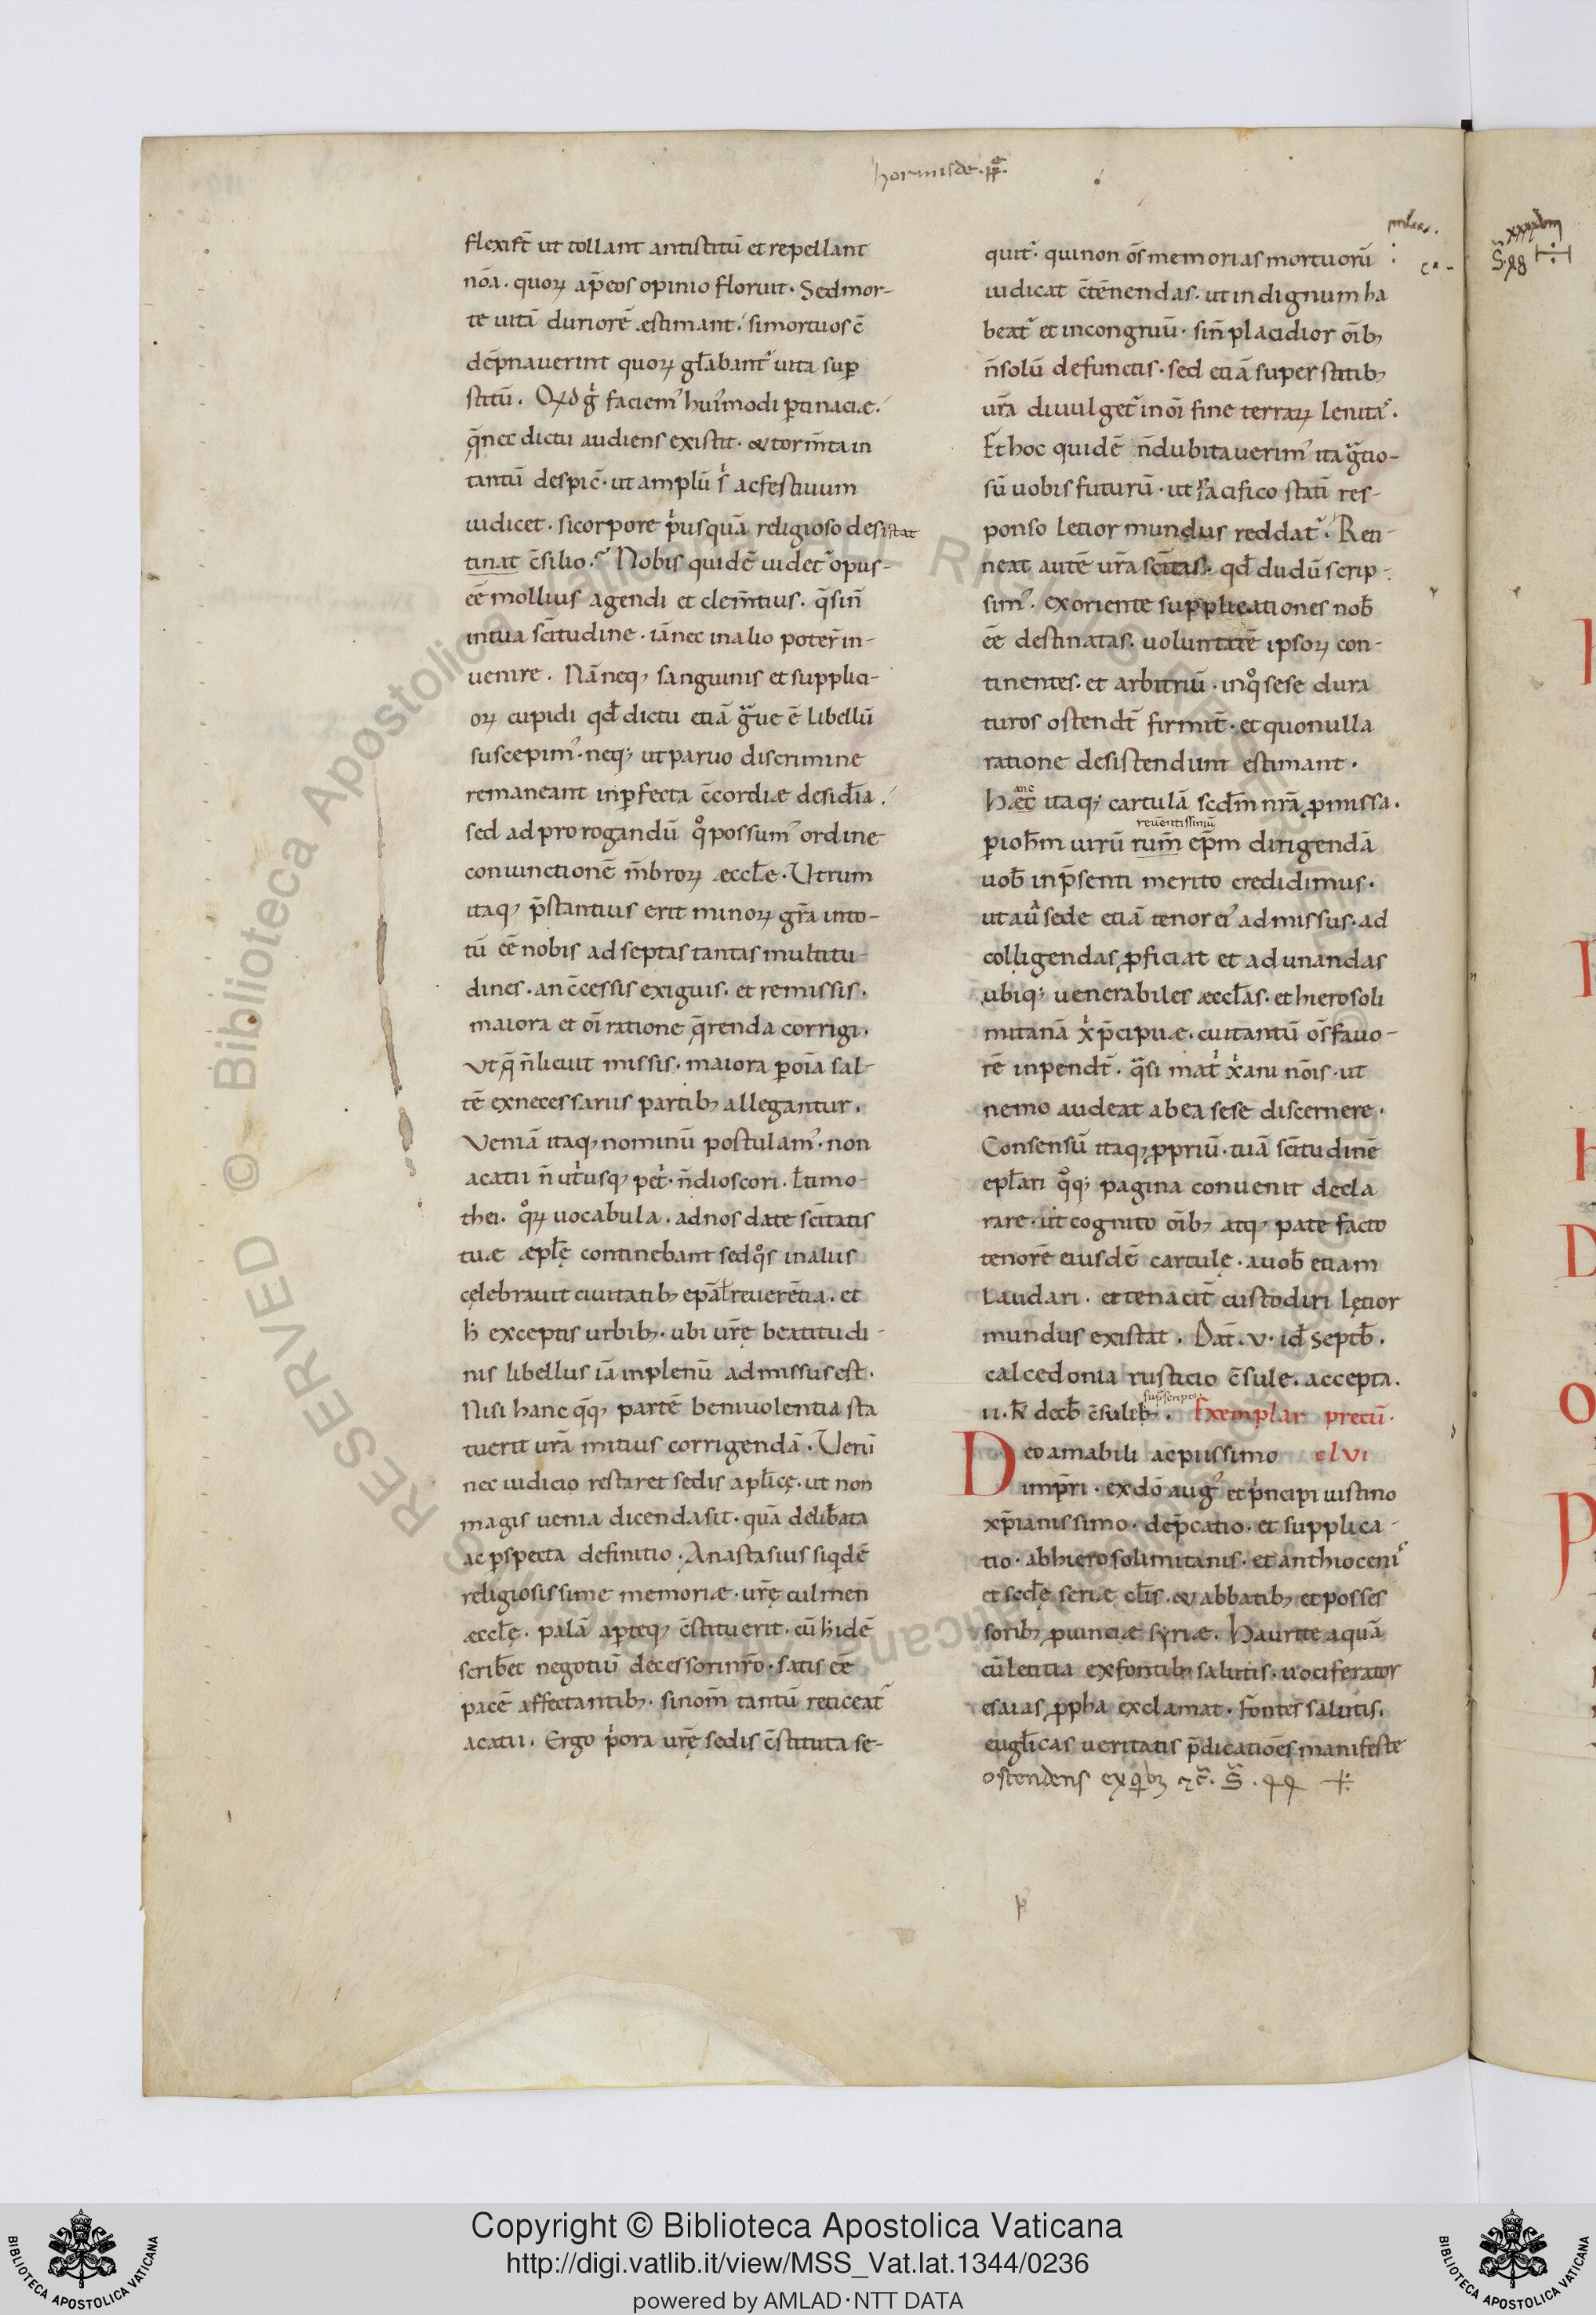 hormisde · pp̄ ·
flexer̄t ut tollant antistitū et repellant
nōa. quoꝝ ap̄ eos opinio floruit. Sed mor-
te uitā duriorē æstimant. si mortuos c̄
dēpnauerint quoꝝ gl̄abant᷑ uita sup̲
stitū. Qd gͥ faciem᷒ hui᷒modi ꝑtinaciæ.
q̄ nec dictu audiens existit. & torm̄ta in
tantū despic̄. ut amplū s ac festiuum
iudicet. si corpore pͥusquā religioso desistat
tinat c̄silio. Nobis quidē uidet᷑ opus-
eē mollius agendi et clem̄tius. q̄ sin̄
in tua sc̄itudine. iā nec in alio poter̄ in-
uenire. Nā neq; sanguinis et supplici-
oꝝ cupidi qđ dictu etiā gͣue ē libellū
suscepim᷒. neq; ut paruo discrimine
remaneant inꝑfecta c̄cordiæ desid̄ia.
sed ad prorogandū qͦ possum᷒ ordine
coniunctionē m̄broꝝ æccl̄e. Utrum
itaq; p̄stantius erit minoꝝ gr̄a in to-
tū eē nobis ad septas tantas multitu-
dines. an c̄cessis exiguis. et remissis.
maiora et oī ratione q̄renda corrigi.
Ut q̄ n̄ licuit missis. maiora ꝑ oīa sal-
tē ex necessariis partib; allegantur.
Veniā itaq; nominū postulam᷒. non
acatii n̄ utͥusq; petͥ. n̄ dioscori. ł timo-
thei. qͦꝝ uocabula. ad nos date sc̄itatis
tuæ æpl̄ę continebant sed qͦs in aliis
cęlebrauit ciuitatib; ep̄ał reuerētia. et
ħ exceptis urbib;. ubi ur̄ę beatitudi-
nis libellus iā in plenū admissus est.
Nisi hanc q̄q; partē beniuolentia sta
tuerit ur̄ā mitius corrigendā. Uerū
nec iudicio restaret sedis apl̄icę. ut non
magis uenia dicenda sit. quā delib̄ata
ac ꝑspecta definitio. Anastasius siqdē
religiosissime memoriæ. ur̄ę culmen
æccl̄ę. palā aꝑteq; c̄stituerit. cū ħ idē
scrib̄et negotiū decessori nr̄o. satis eē
pacē affectantib;. si nom̄ tantū reticeat᷑
acatii. Ergo pͥora ur̄ę sedis c̄stituta se-
quit᷑. qui non ōs memorias mortuorū
iudicat c̄tēnendas. ut indignum ha
beat᷑ et incongruū. sin̄ placidior oīb;
n̄ solū defunctis. sed etiā superstitib;
ur̄a diuulget᷑ in oī fine terraꝝ lenitas.
Et hoc quidē n̄ dubitauerim᷒ ita gͣtio-
sū uobis futurū. ut pacifico statī res-
ponso letior mundus reddat᷑. Reti-
neat autē ur̄a sc̄itas. qđ dudū scrip-
sim᷒. ex oriente supplicationes nob̄
eē destinatas. uoluntatē ipsoꝝ con-
tinentes. et arbitriū. in qͦ sese dura
turos ostendt̄ firmit̄. et quo nulla
ratione desistendum estimant.
anc
Hæc itaq; cartulā scd̄m nr̄ā ꝓmissa.
reuerentissimū
ꝑ ioh̄m uirū rum̄ ep̄m dirigendā
uob̄ in p̄senti merito credidimus.
ut a ur̄a sede etiā tenor ei᷒ admissus. ad
colligendas ꝓficiat et adunandas
ubiq; uenerabiles æccl̄as. et hierosoli
mitanā xͥ p̄cipuæ. cui tantū ōs fauo-
rē inpendt̄. qͣsi matͥ xͥani nōis. ut
nemo audeat ab ea sese discernere.
Consensū itaq; ꝓpriū. tuā sc̄itudinē
epl̄ari qͦq; pagina conuenit decla
rare. ut cognito oīb; atq; patefacto
tenorē eiusdē cartulę. a uob̄ etiam
laudari. et tenacit̄ custodiri lętior
mundus existat. Dat̄. v. id Septb̄.
calcedonia rusticio c̄sule. accepta.
sup̄scriptis.
ii. k̄ decb̄ c̄sulib;. Exemplar precū.
Deo amabili ac piissimo clvi
imp̄ri. ex dō aug᷒ et pͥncipi iustino
xp̄ianissimo. dep̄catio. et supplica-
tio. ab hierosolimitanis. et anthioceni᷒
et secl̄e scriæ cl̄is. & abbatib; et posses
sorib; ꝓuinciæ syriæ. Haurite aquā
cū letitia ex fontib; salutis. uociferator
esaias ꝓpha exclamat. Fontes salutis.
eugl̄icas ueritatis p̄dicatiōēs manifeste
ostendens ex qͥb;